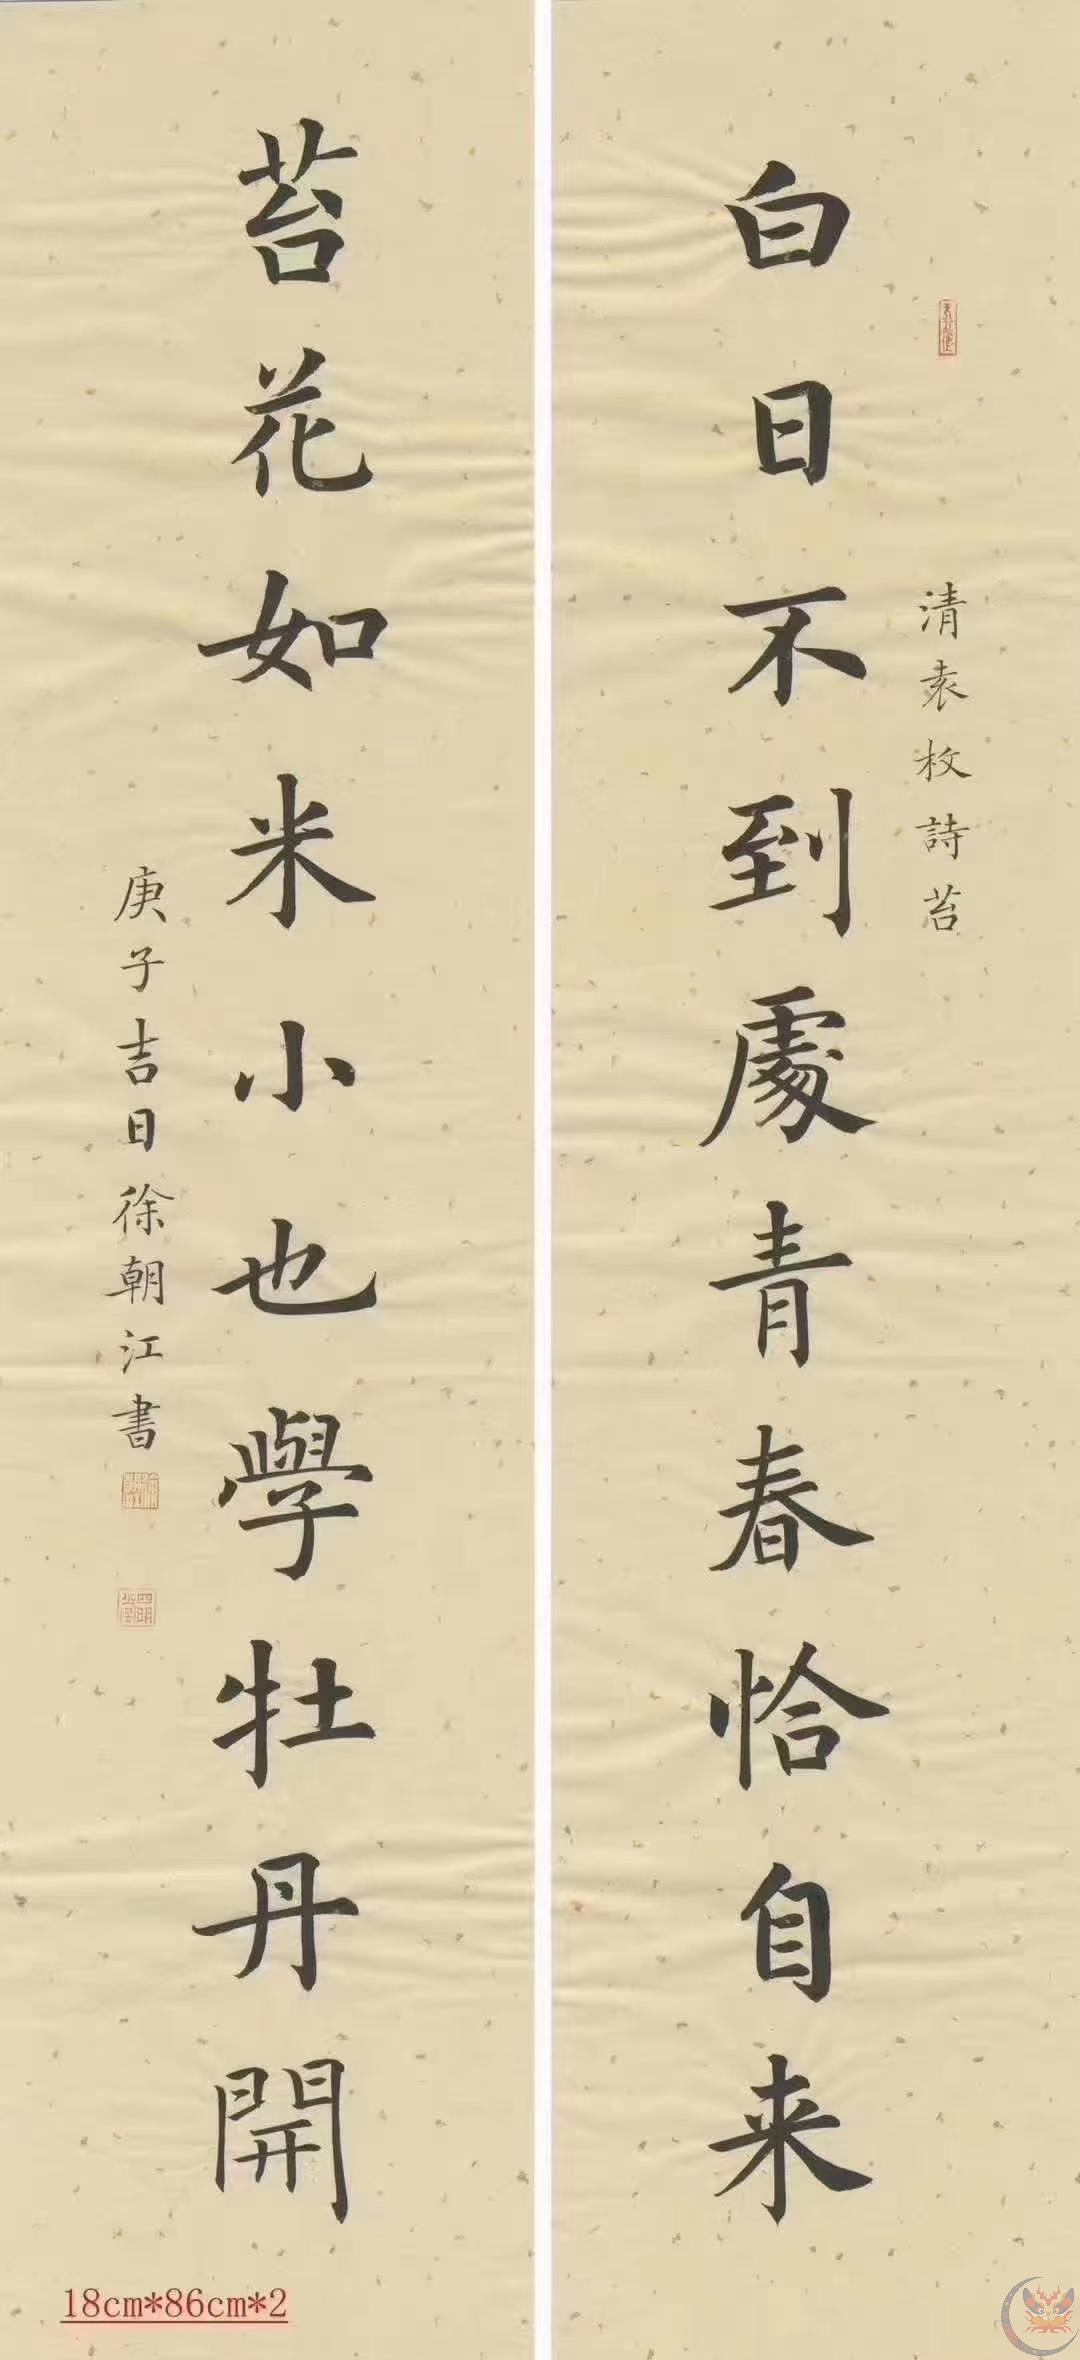 清袁枚詩苔
白日不到處青春恰自来
苔花如米小也學牡丹開
庚子吉日徐朝江書
18cm*86cm*2